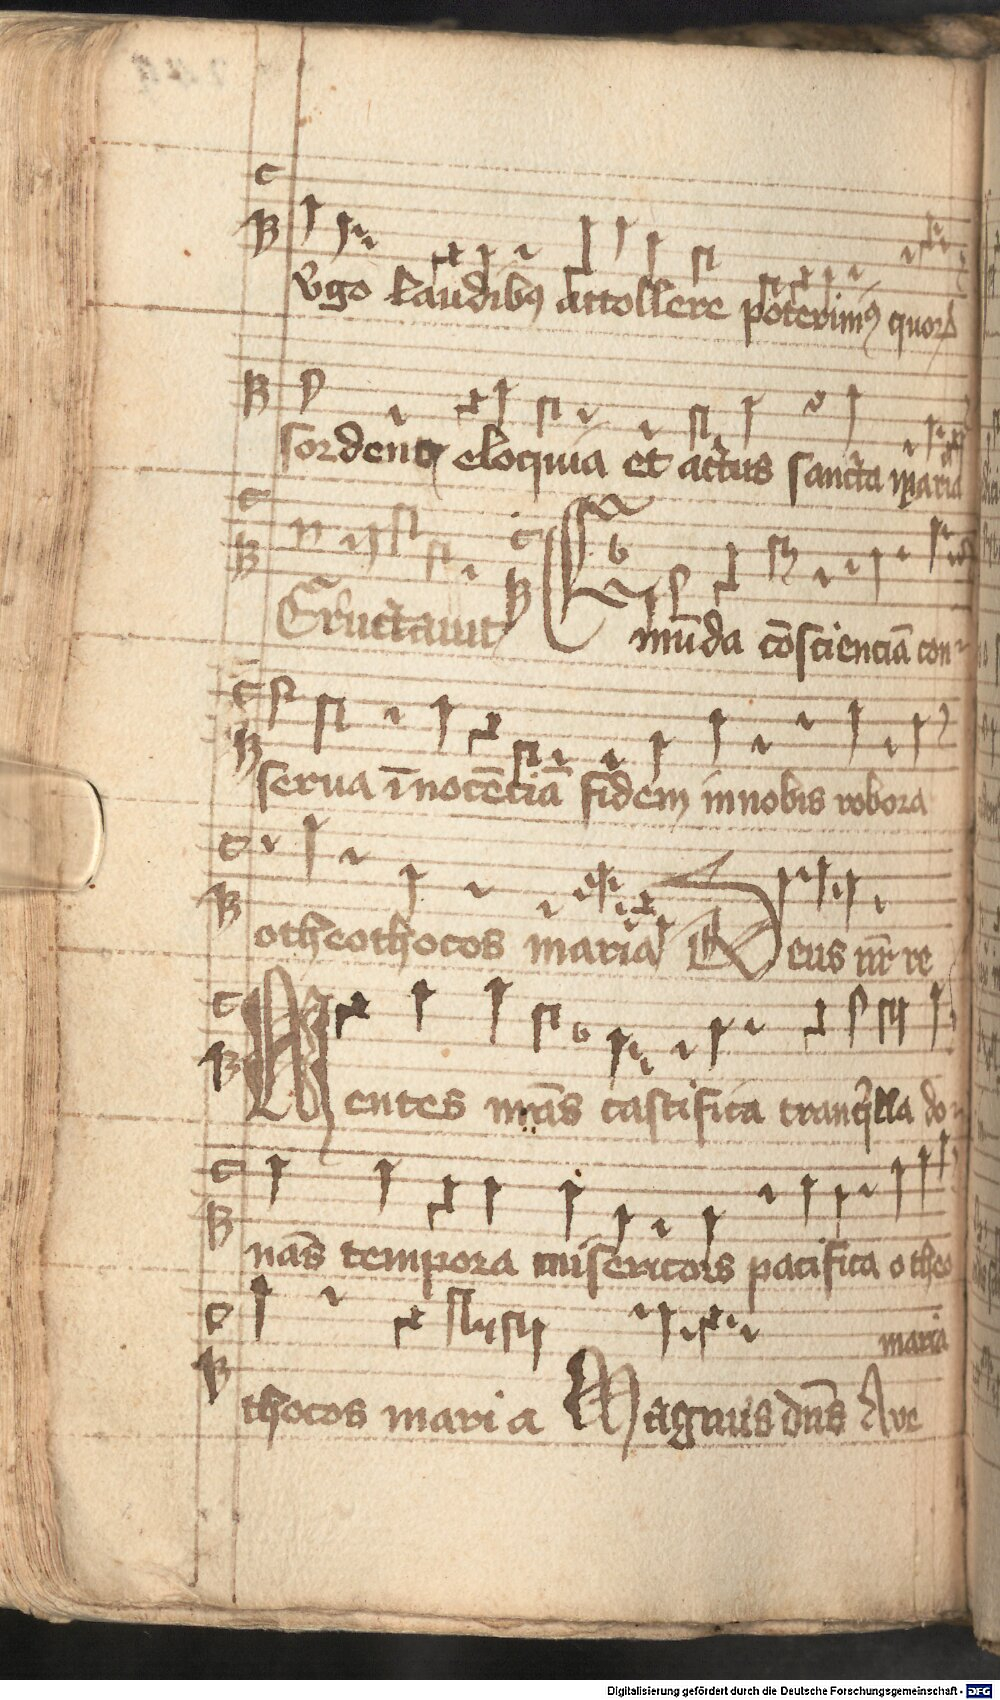 v̾go laudibꝰ attollere poterimꝰ quor
sordent eloquia et actus sancta maria
Eructauit Emūda cōscienciā con
serua īnocēciā fidem in nobis robora
o theothocos maria Deus nr̄ re
Mentes nrās castifica tranq̇lla do
nās tempora misericors pacifica o theo
maria
thocos maria Magnus dn̄s Ave
Digitalisierung gefördert durch die Deutsche Forschungsgemeinschaft - DFG